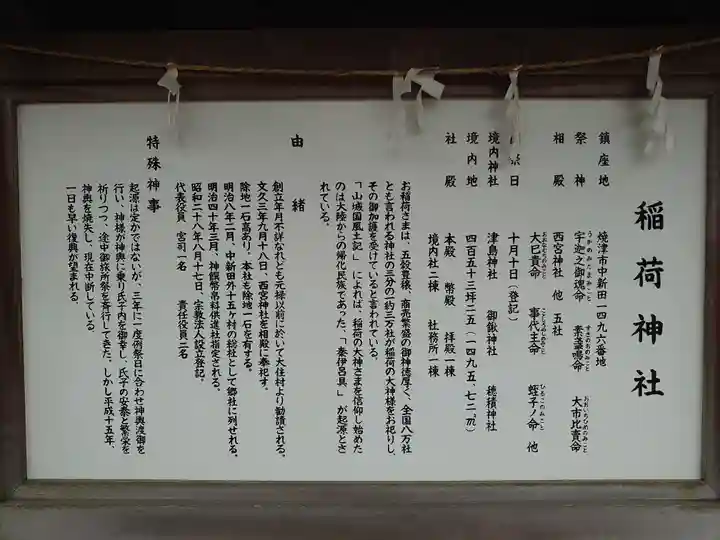 稲荷神社
鎮座地 焼津市中新田一四九六番地
祭神 宇迦之御魂命 素盞嗚命 大市比賣命
うかのみたまのみこと すさのおのみこと おおいちひめのみこと
相殿 西宮神社 他 五社
大巳貴命 事代主命 蛭子ノ命 他
ことしろぬしのみこと ひるこのみこと
祭日 十月十日(登記)
境内神社 津島神社 御鍬神社 穂積神社
境内地 四百五十三坪二五(一四九五、七二㎡)
社殿 本殿 幣殿 拝殿一棟
境内社二棟 社務所一棟
お稲荷さまは、五穀豊穣、商売繁盛の御神徳厚く、全国八万社
とも言われる神社の三分の一約三万社が稲荷の大神様をお祀りし
その御加護を受けていると言われている。
「山城国風土記」によれば、稲荷の大神さまを信仰し始めた
のは大陸からの帰化民族であった、「秦伊呂具」が起源とさ
れている。
由緒
創立年月不詳なれども元禄以前に於いて大住村より勧請される。
文久三年九月十八日、西宮神社を相殿に奉祀す。
除地一石高あり。本社も除地一石を有する。
明治八年二月、中新田外十五ヶ村の総社として郷社に列せれる。
明治四十年三月、神饌幣帛料供進社指定される。
昭和二十八年八月十七日、宗教法人設立登記。
代表役員 宮司一名 責任役員二名
特殊神事
起源は定かではないが、三年に一度例祭日に合わせ神輿渡御を
行い、神様が神輿に乗り氏子内を御幸し、氏子の安泰と繁栄を
祈りつつ、途中御旅所祭を斎行してきた。しかし平成十五年、
神輿を焼失し、現在中断している。
一日も早い復興が望まれる。